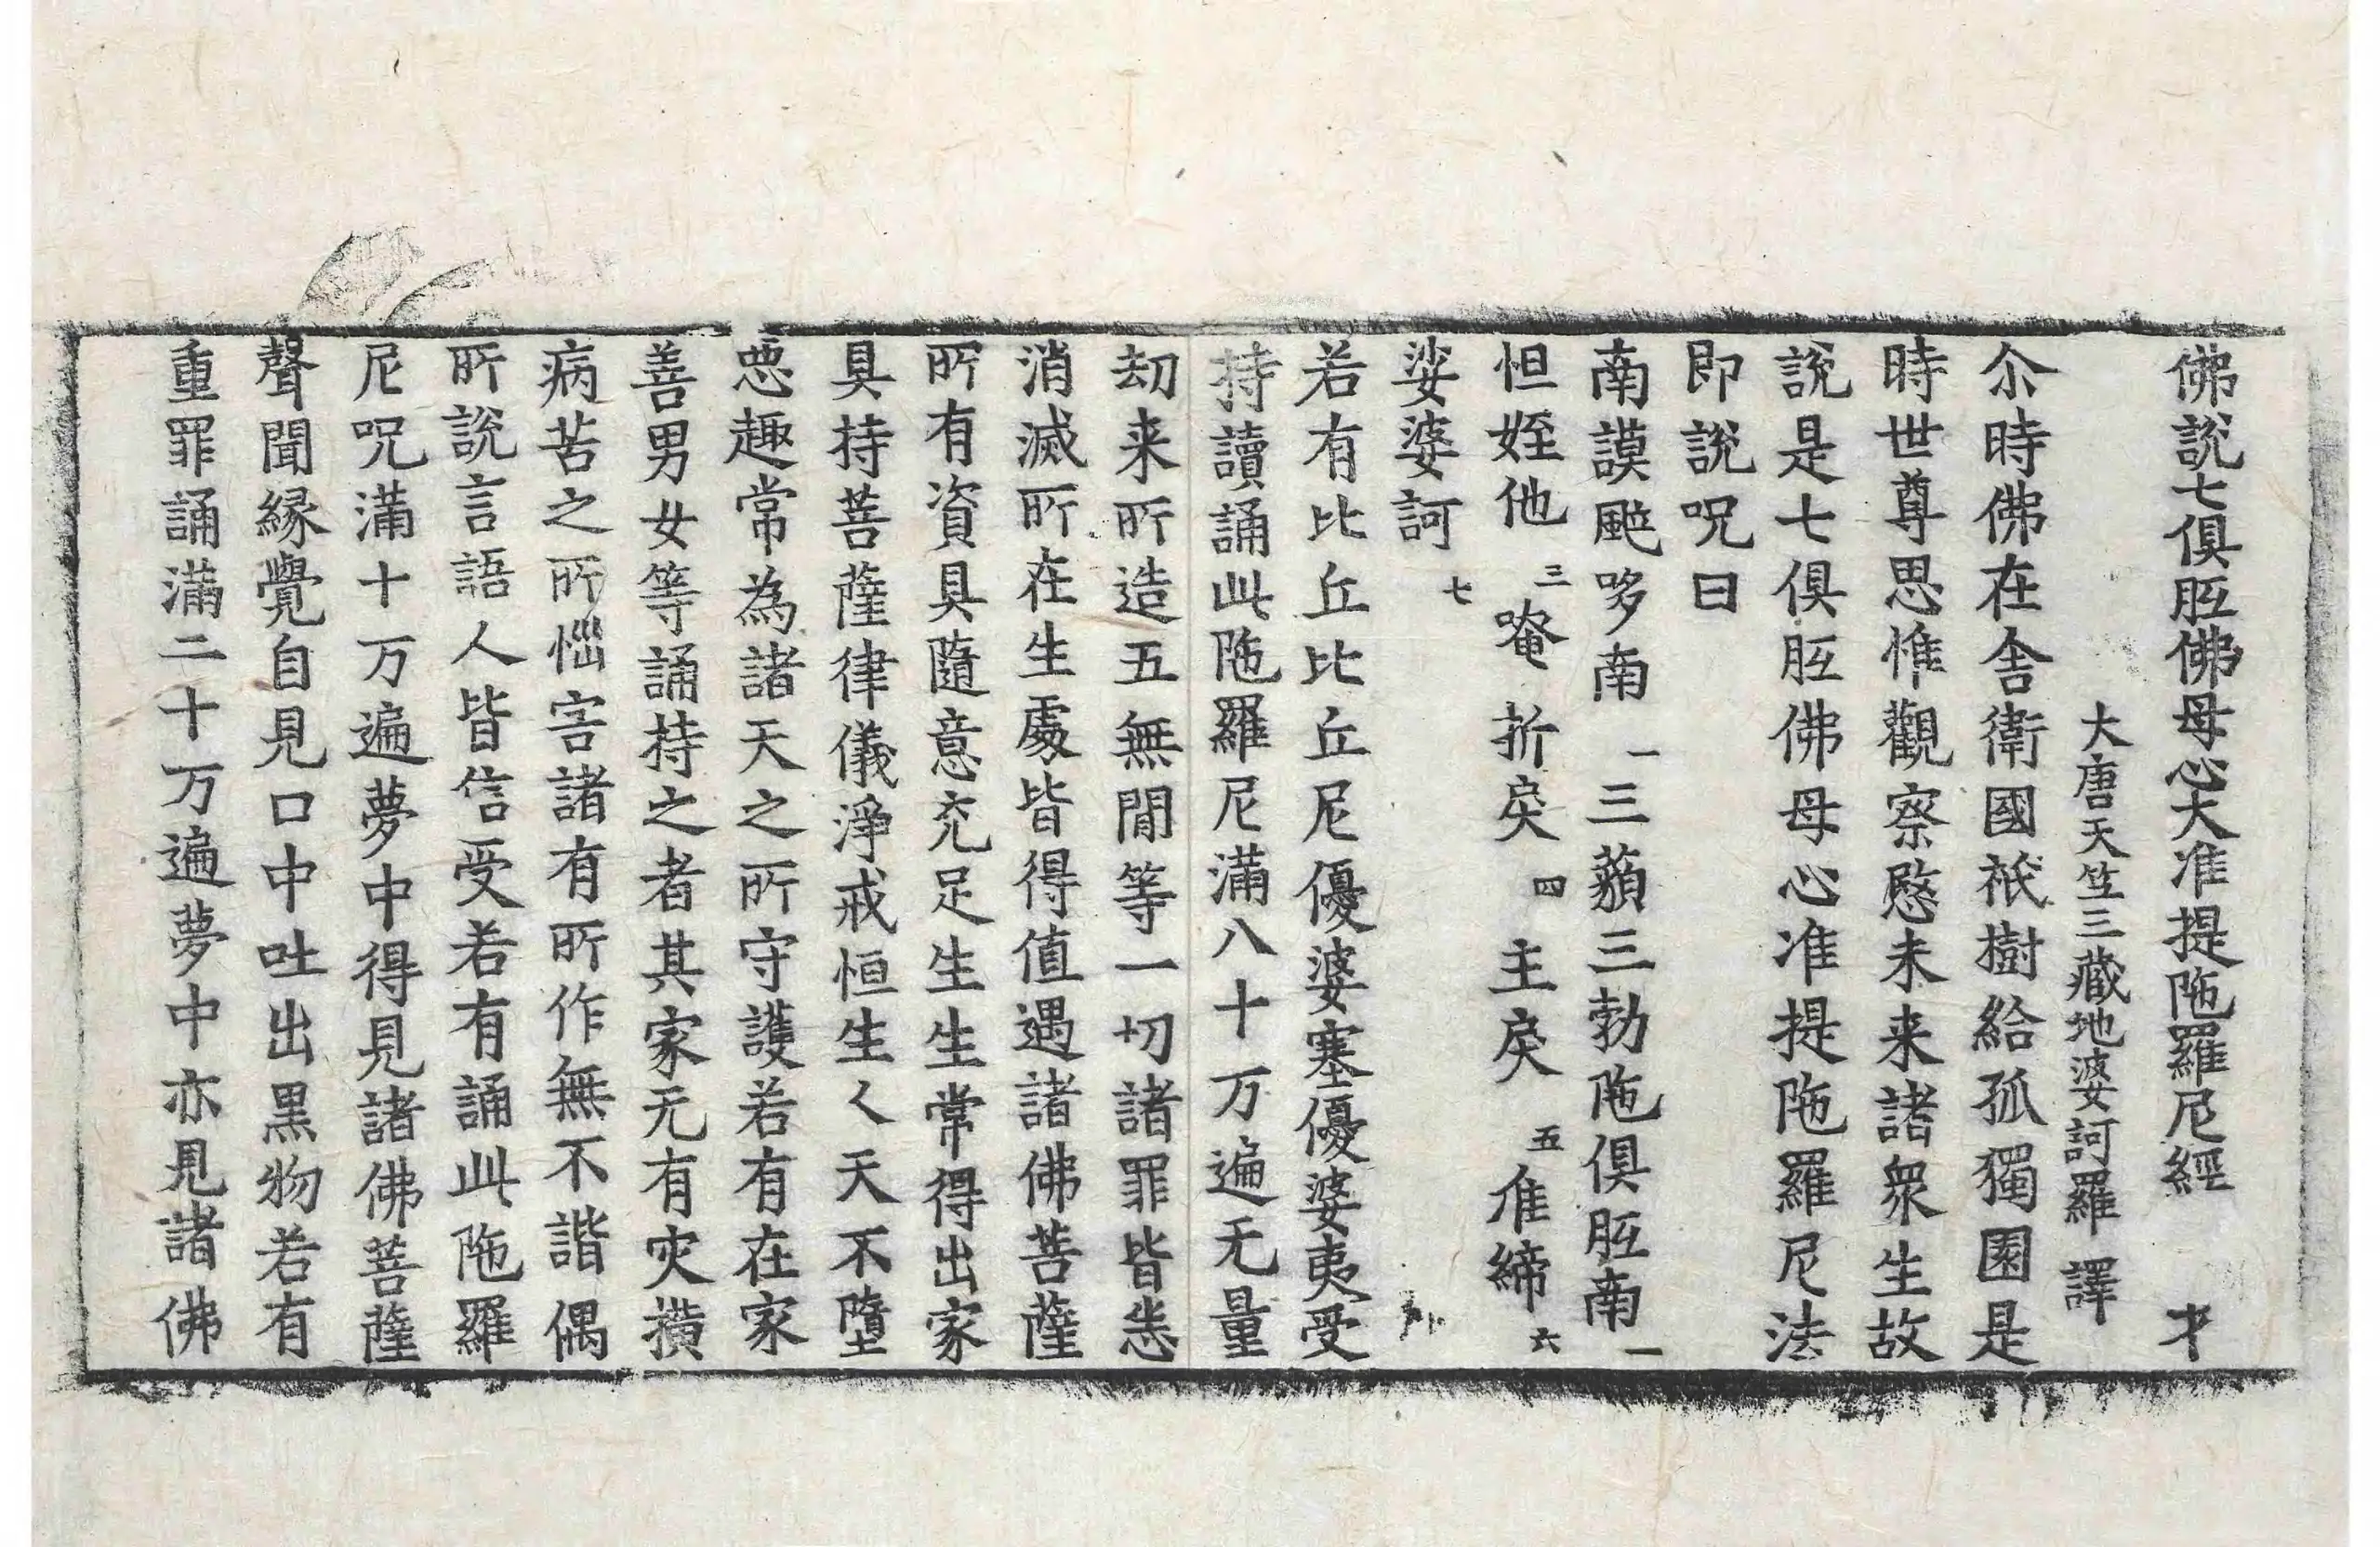 佛說七俱胝佛母心大准提陁羅尼經 才
大唐天竺三藏地婆訶羅 譯
尒時佛在舍衛國祇樹給孤獨園是
時世尊思惟觀察愍未来諸衆生故
說是七俱胝佛母心准提陁羅尼法
即說呪曰
南謨颯哆南一三藐三勃陁俱胝南二
怛姪他三唵折戾四主戾五准締六
娑婆訶七
若有比丘比丘尼優婆塞優婆夷受
持讀誦此陁羅尼滿八十万遍无量
刧来所造五無間等一切諸罪皆悉
消滅所在生處皆得值遇諸佛菩薩
所有資具隨意充足生生常得出家
具持菩薩律儀淨戒恒生人天不墮
惡趣常為諸天之所守護若有在家
善男女等誦持之者其家无有灾橫
病苦之所惱害諸有所作無不諧偶
所說言語人皆信受若有誦此陁羅
尼呪滿十万遍夢中得見諸佛菩薩
聲聞緣覺自見口中吐出黑物若有
重罪誦滿二十万遍夢中亦見諸佛